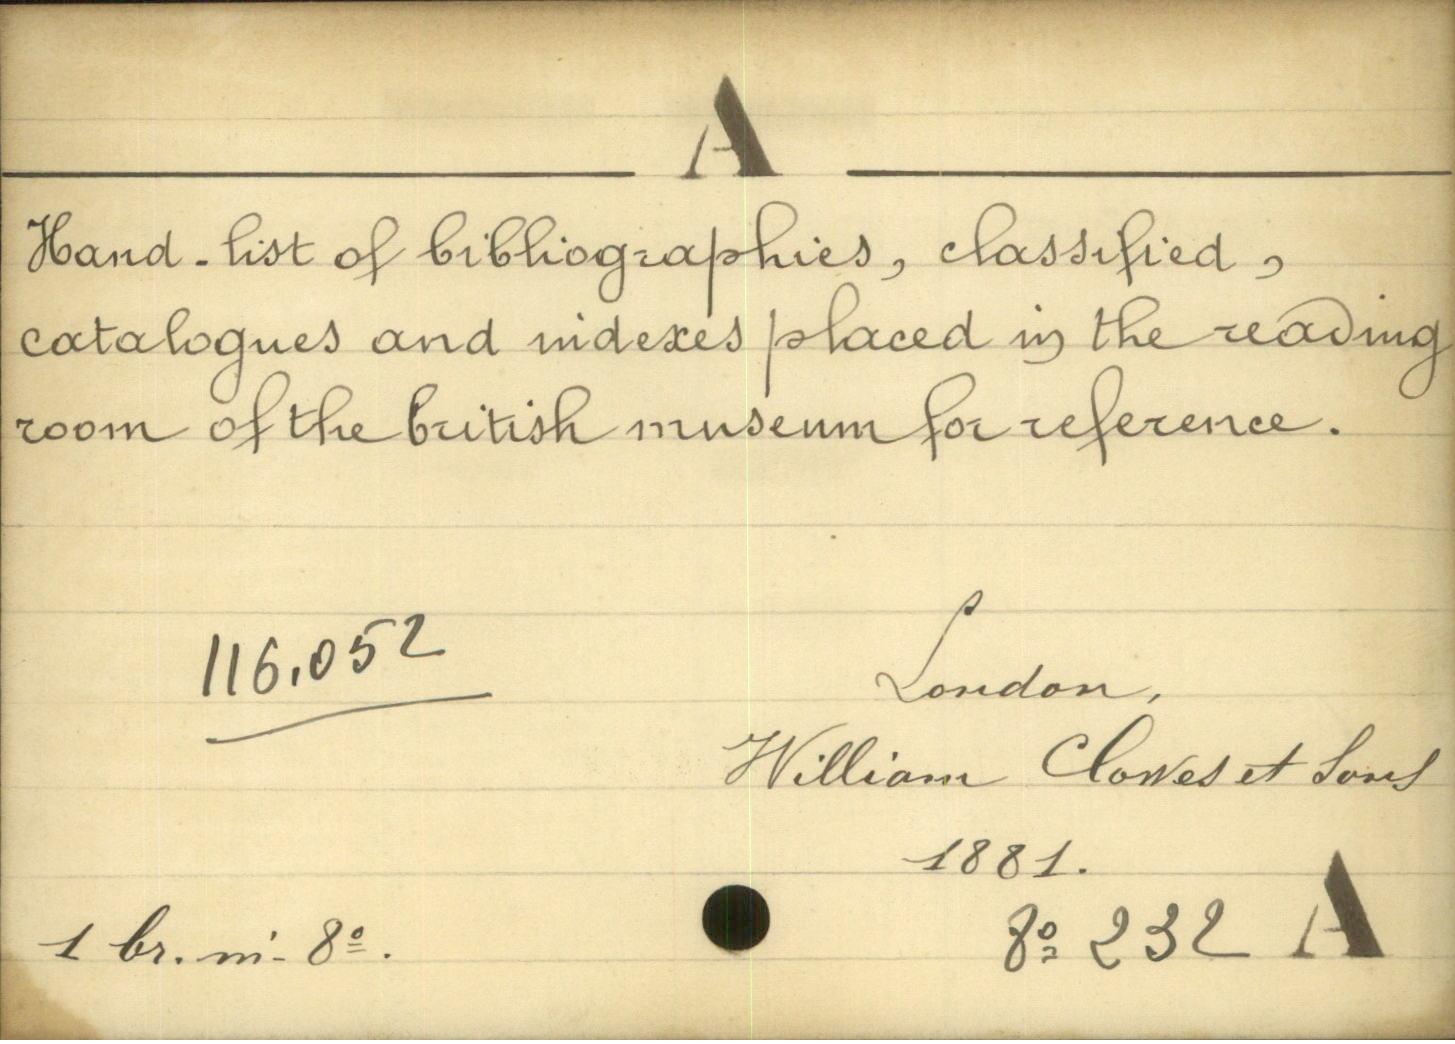 A
Hand-list of bibliographies, classified,
catalogues and indexes placed in the reading
room of the british museum for reference.
116.052
London,
William Clowes et Sons
1881.
1 br. in-8º.
8º 232 A